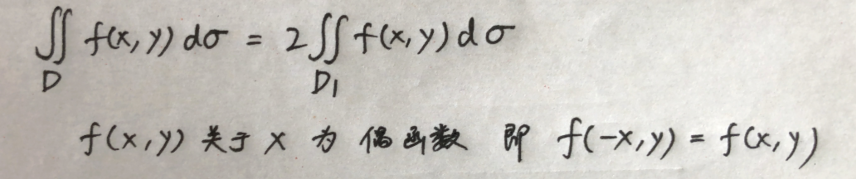 ∬ f(x,y) dσ = 2∬ f(x,y) dσ
D D₁
f(x,y) 关于 x 为 偶函数 即 f(-x,y) = f(x,y)